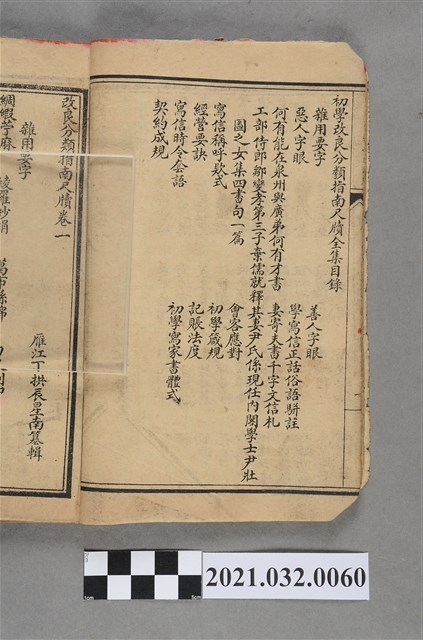 初學改良分類指南尺牘全集目錄
雜用要字
善人字眼
惡人字眼
學寫信正話俗語駢註
何有能在泉州與廣弟何有才書
妻寄夫書千字文信札
工部侍郎鄭孌孝第三子棄儒就釋其妻尹氏係現任內閣學士尹壯
圖之女集四書句一篇
會客應對
寫信稱呼欵式
初學箴規
經營要訣
記賬法度
寫信時令套語
初學寫家書體式
契約成規
改良分類指南尺牘卷一
雁江丁拱辰星南纂輯
雜用要字
綢緞苧麻
綾羅紗絹
1cm
5cm
2021.032.0060